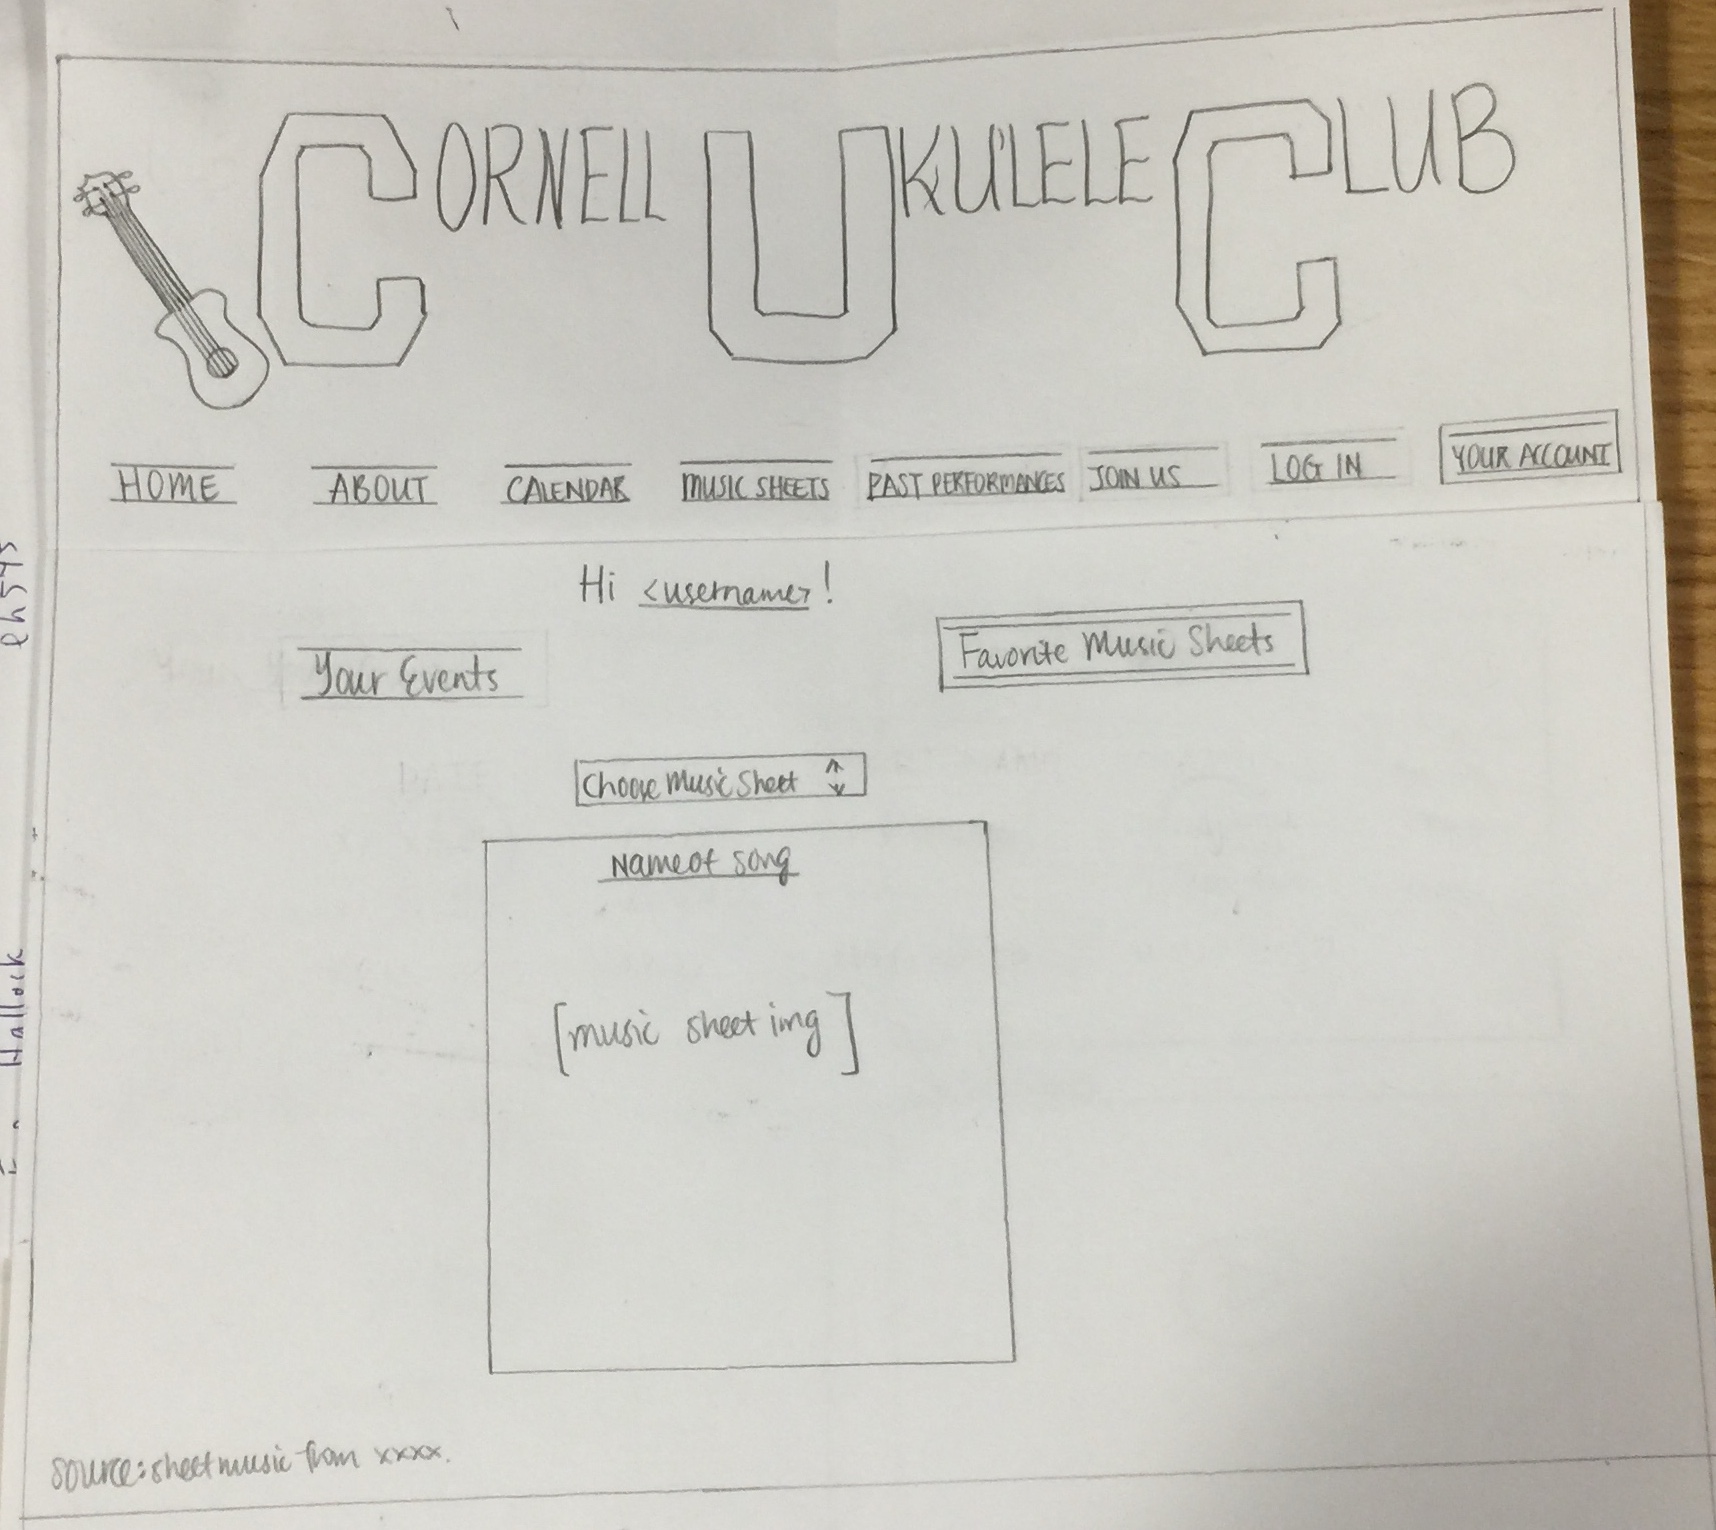 CORNELL UKULELE CLUB
HOME ABOUT CALENDAR MUSIC SHEETS PAST PERFORMANCES JOIN US LOG IN YOUR ACCOUNT
Hi <username>!
Your Events Favorite Music Sheets
Choose Music Sheet
Name of song
[music sheet img]
source: sheet music from xxxx.
Hallock